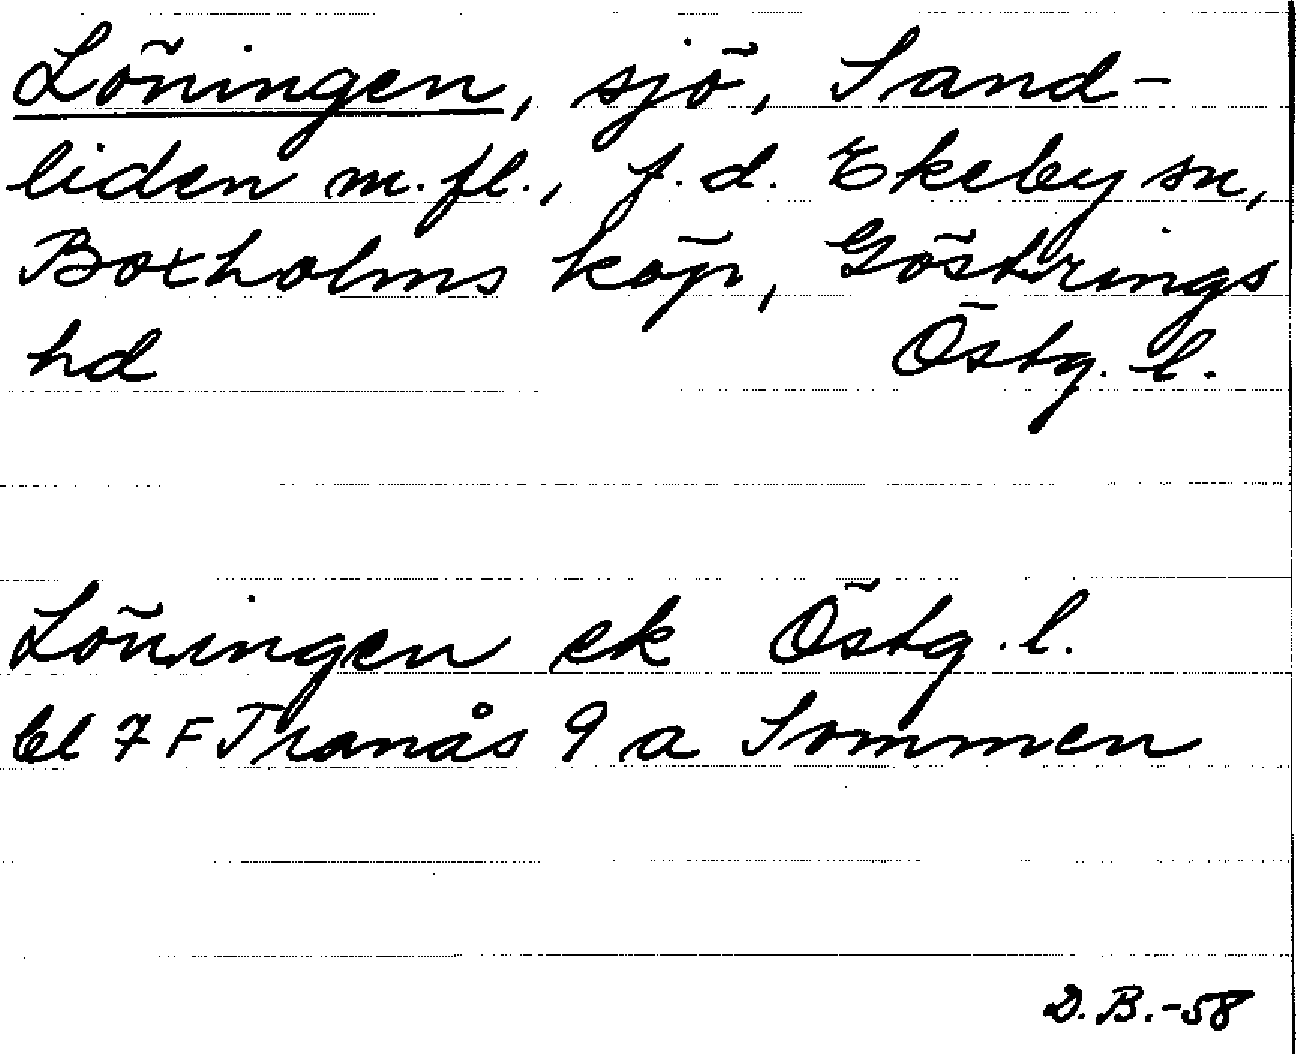 Löningen, sjö, Sand-
liden m.fl., f.d. Ekeby sn,
Boxholms köp, Göstrings
hd Östg. l.
Löningen ek Östg. l.
bl 7 F Tranås 9 a Sommen
D.B.-58